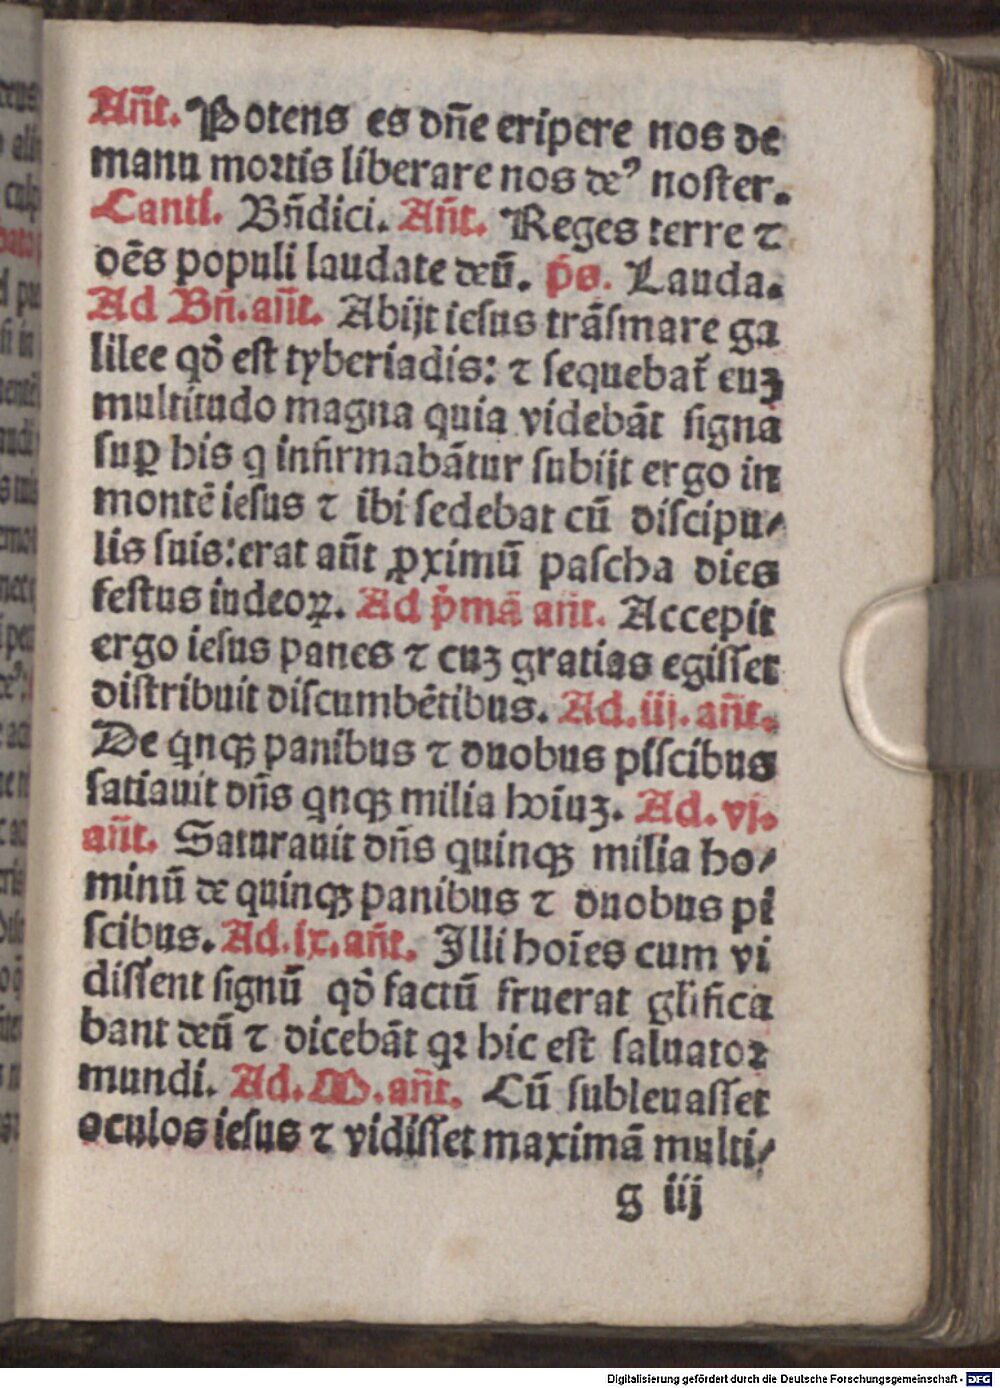 Añt. Potens es dñe eripere nos de
manu mortis liberare nos deꝰ noster.
Cantl. Bñdici. Añt. Reges terre ⁊
oēs populi laudate deū. p̄s. Lauda.
Ad Bñ. añt. Abijt iesus trāsmare ga
lilee qd̄ est tyberiadis: ⁊ sequebat̄ euꝫ
multitudo magna quia videbāt signa
suꝑ his q infirmabātur subijt ergo in
montē iesus ⁊ ibi sedebat cū discipu⸗
lis suis: erat aūt ꝓximū pascha dies
festus iudeoꝝ. Ad p̄mā añt. Accepit
ergo iesus panes ⁊ cuꝫ gratias egisset
distribuit discumbētibus. Ad. iij. añt.
De qnqꝫ panibus ⁊ duobus piscibus
satiauit dñs qnqꝫ milia hoiuꝫ. Ad. vj.
añt. Saturauit dñs quinqꝫ milia ho⸗
minū de quinqꝫ panibus ⁊ duobus pi
scibus. Ad. ix. añt. Illi hoīes cum vi
dissent signū qd̄ factū fuerat glifica
bant deū ⁊ dicebāt qꝛ hic est saluator
mundi. Ad. M. añt. Cū subleuasset
oculos iesus ⁊ vidisset maximā multi⸗
g iij
Digitalisierung gefördert durch die Deutsche Forschungsgemeinschaft - DFG